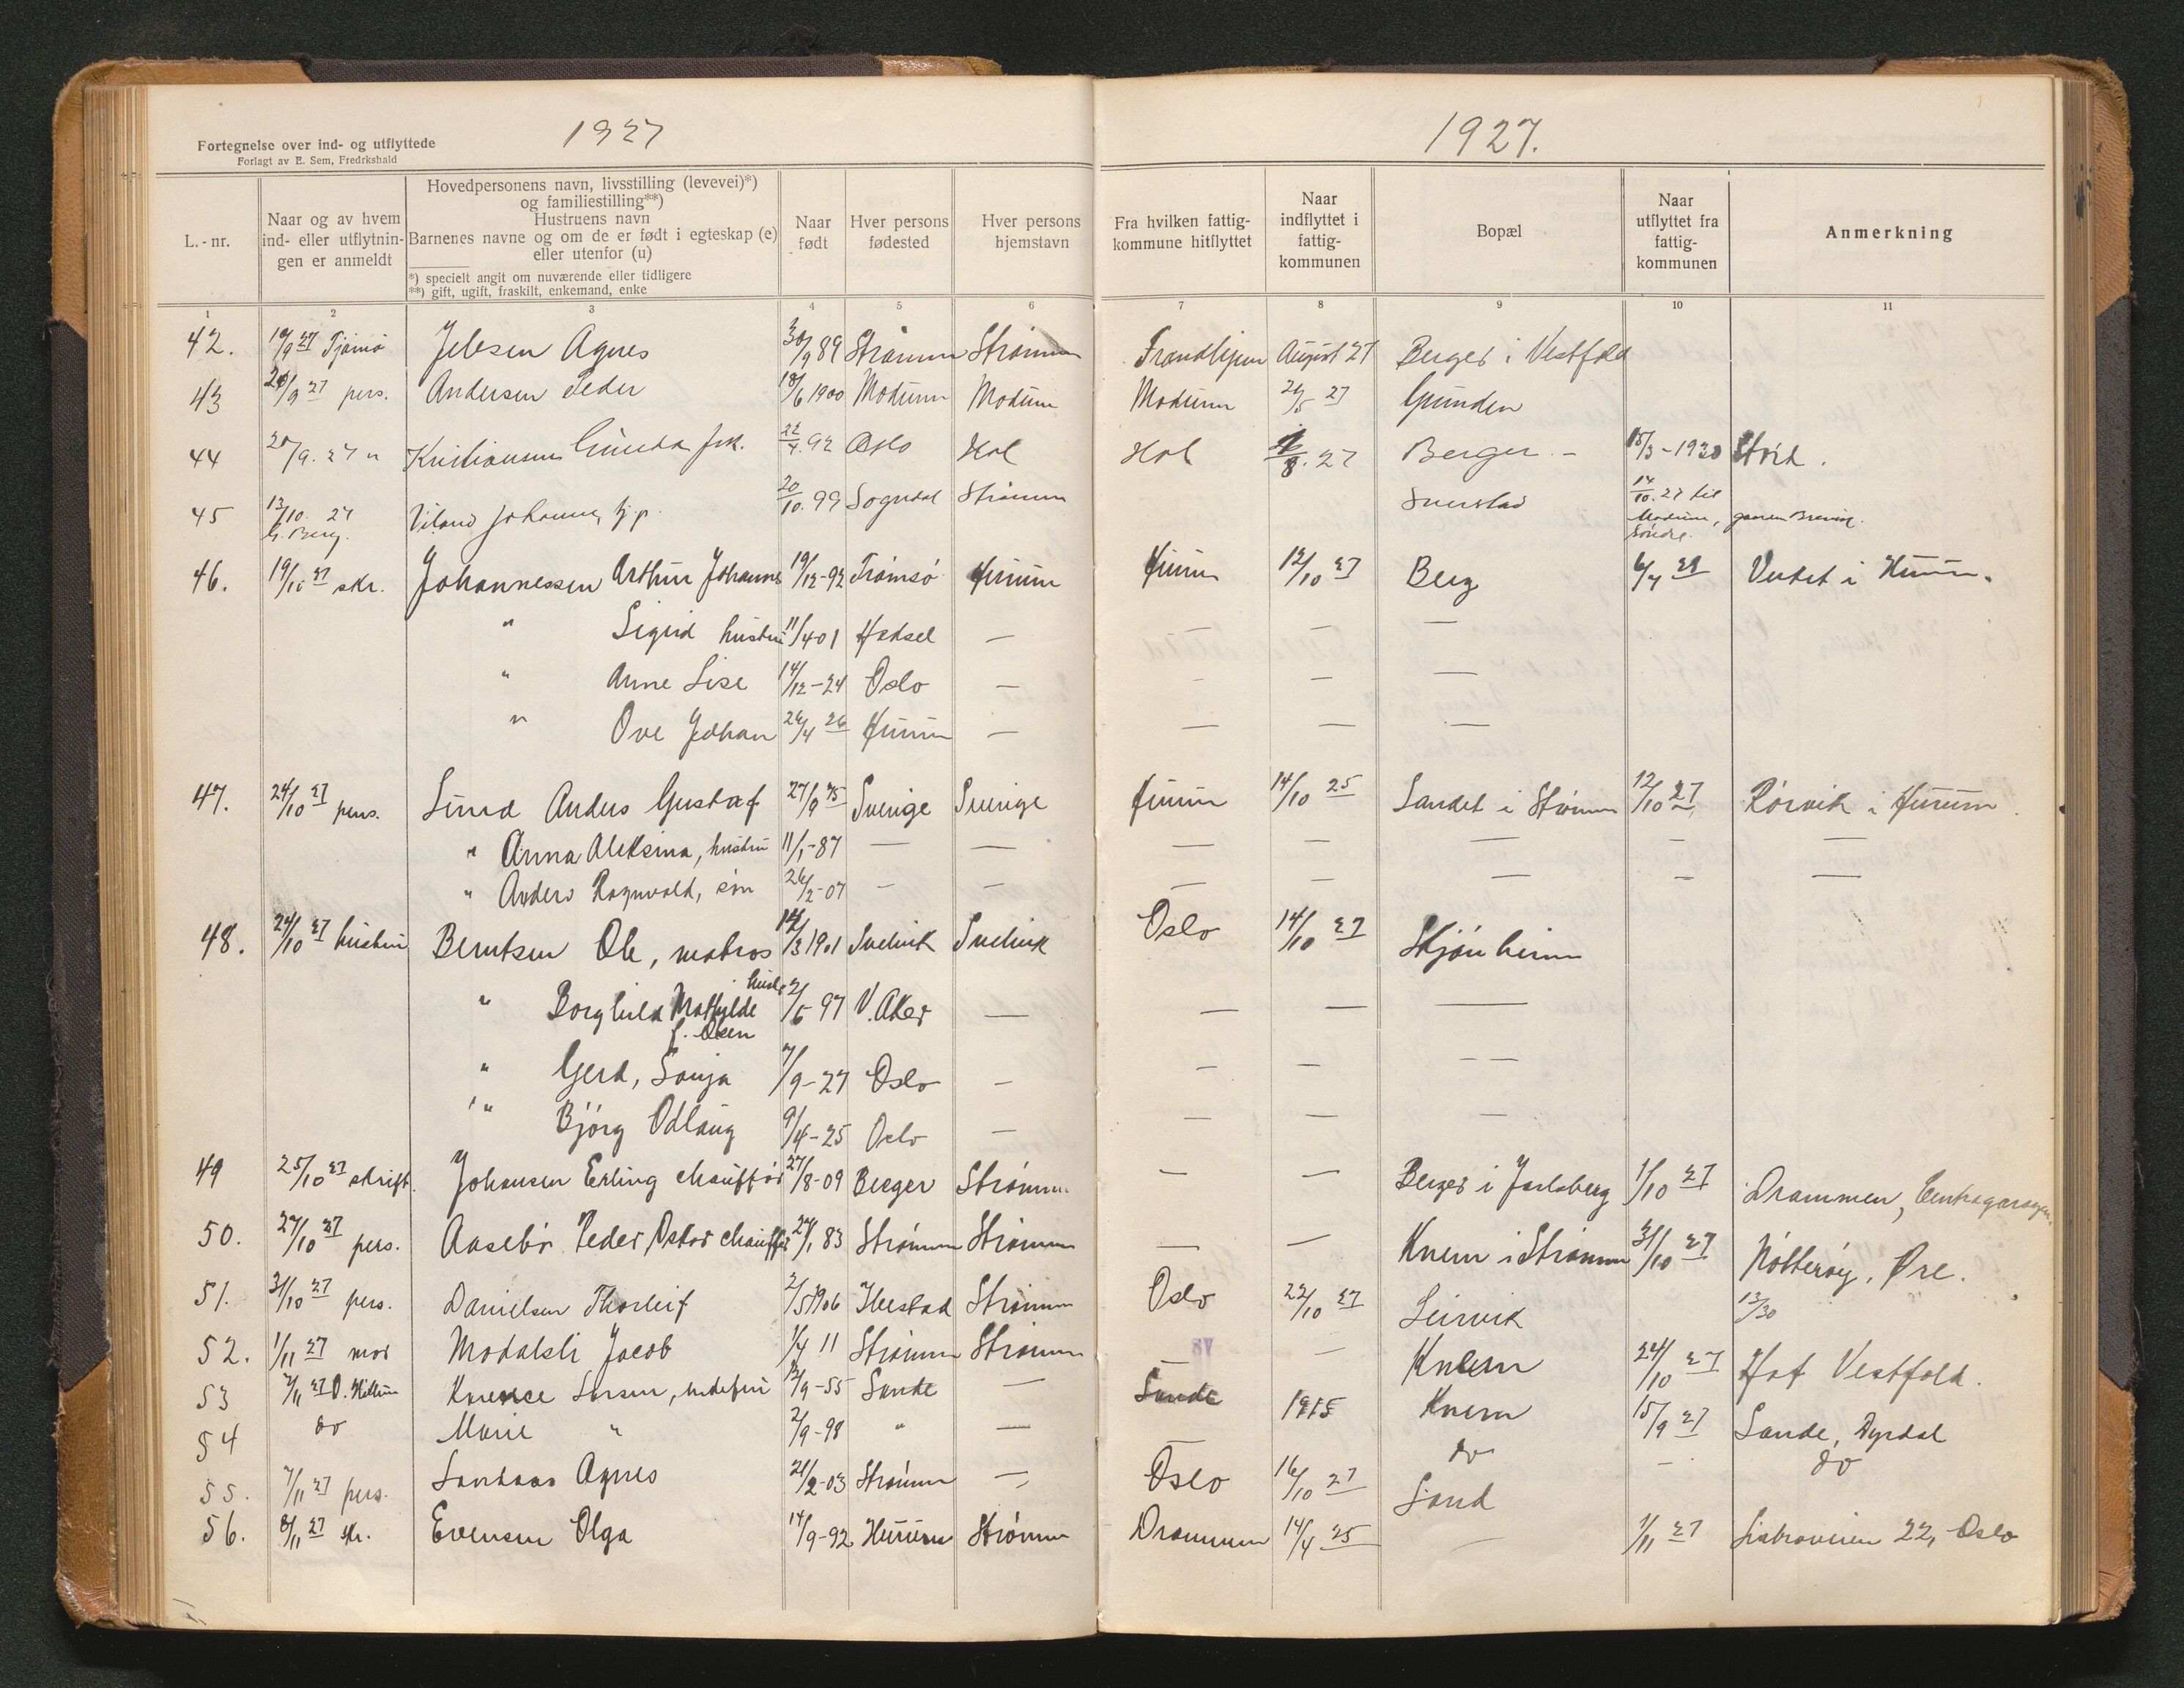 1927
Fortegnelse over ind- og utflyttede
Forlagt av E. Sem, Fredrkshald
1927.
L.-nr.
Naar og av hvem ind- eller utflytningen er anmeldt
Hovedpersonens navn, livsstilling (levevei)*)
og familiestilling**)
Hustruens navn
Barnenes navne og om de er født i egteskap (e)
eller utenfor (u)
*) specielt angit om nuværende eller tidligere
**) gift, ugift, fraskilt, enkemand, enke
Naar født
Hver persons fødested
Hver persons hjemstavn
Fra hvilken fattigkommune hitflyttet
Naar indflyttet i fattigkommunen
Bopæl
Naar utflyttet fra fattigkommunen
Anmerkning
1 2 3 4 5 6 7 8 9 10 11
42. 19/9 27 Tjømø Jebsen Agnes 30/9 89 Strømm Strømm August 27 Berger i Vestfold
43 pers. Andersen Peder 18/6 1900 Modum Modum Modum 27 Grunden
44 20/9. 27 " Kristiansen 22/4. 92 Oslo Hol Hol 8. 27 Berger - 15/3-1930
45 13/10. 27 Johanne, tj.p. 20/10. 99 Sogndal Strømm Sverstad 14/10. 27 til
Modum,
søndre.
46. 19/10 27 skr. Johannessen Arthur Johannes 19/12-92 Tromsø Hurum Hurum 12/10 27 Berg 6/7 28 i Hurum.
" Sigrid hustru 11/4 01 Hadsel — — — —
" Anne Lise 14/12-24 Oslo — - - —
" Ove Johan 26/4 26 Hurum — — — —
47. 24/10 27 pers. Lund Anders Gustaf 27/9 75 Sverige Sverige Hurum 14/10 25 Sandet i Strømm 12/10 27 Rørvik i Hurum.
" Anna Aleksina, hustru 11/1-87 — — — — — - —
" Anders Ragnvald, søn 26/2-07 - — — — — - —
48. 24/10 27 hustru Berntsen Ole, matros 3 1901 Svelvik Svelvik Oslo 14/10 27 Skjønheim
" Borghild Mathilde hustr. 97 V. Aker — — — —
f. Olsen
" Gerd, Sonja 7/9-27 Oslo - - — - -
" Bjørg Odlaug 9/4-25 Oslo — — — -
49 25/10 27 skrift. Johansen Erling chauffør 27/8-09 Berger Strømm. — — Berger i Jarlsberg 1/10 27 Drammen,
50. 27/10 27 pers. Aasebø Peder Oskar chauffør 83 Strømm Strømm — — Knem i Strømm 31/10 27 Nøtterøy, Øre.
51. 31/10 27 pers. Danielsen Thorleif 2/5 1906 Ibestad Strømm Oslo 22/10 27 Leirvik 13/30
52. 1/11 27 mor Modalsli Jacob 1/4 11 Strømm Strømm — — Knem 24/10 27 Hof Vestfold.
53 27 Larsen, 55 Sande — Sande 1915 Knem 15/9 27 Sande, Dyrdal
54 do Marie " 2/9-98 " — — do - do
55. 7/11 27 pers. Agnes 21/2-03 Strømm — Oslo 16/10 27 Sand
56. 8/11 27 skr. Evensen Olga 14/9-92 Hurum Strømm Drammen 14/4 25 — 1/11 27 22, Oslo